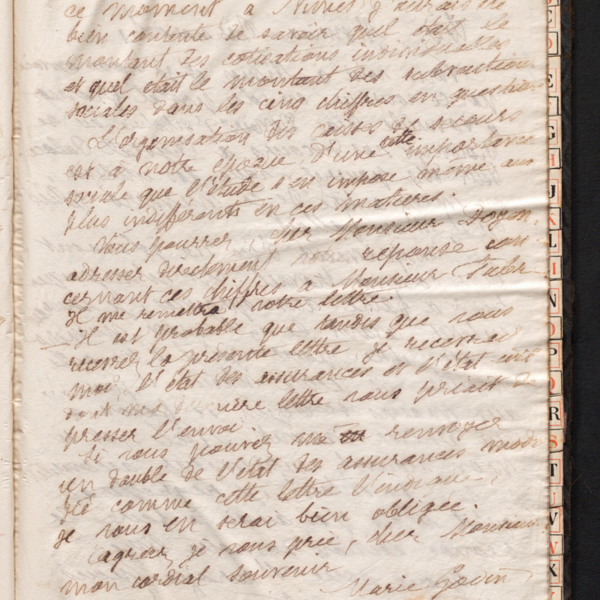 ce moment à Nimes j'aurais été
bien contente de savoir quel était le
montant des cotisations individuelles
et quel était le montant des subventions
sociales dans les cinq chiffres en question
L'organisation des caisses de secours
est à notre époque d'une cette importance
sociale que l'étude s'en impose même aux
plus indifférents en ces matières.
Vous pourrez, cher Monsieur Doyen,
adresser directement votre réponse con
cernant ces chiffres à Monsieur Fabre
il me remettra votre lettre.
Il est probable que tandis que vous
recevrez la présente lettre, je recevrai
moi, l'état des assurances et l'état civil
dont ma dernière lettre vous priait de
presser l'envoi.
Si vous pouviez me renvoyer
un double de l'état des assurances modi
fié comme cette lettre l'indique,
je vous en serai bien obligée.
Agréez, je vous prie, cher Monsieur
mon cordial souvenir
Marie Godin
E
G
H
J
K
L
I
N
O
P
Q
R
S
T
U
V
W
X